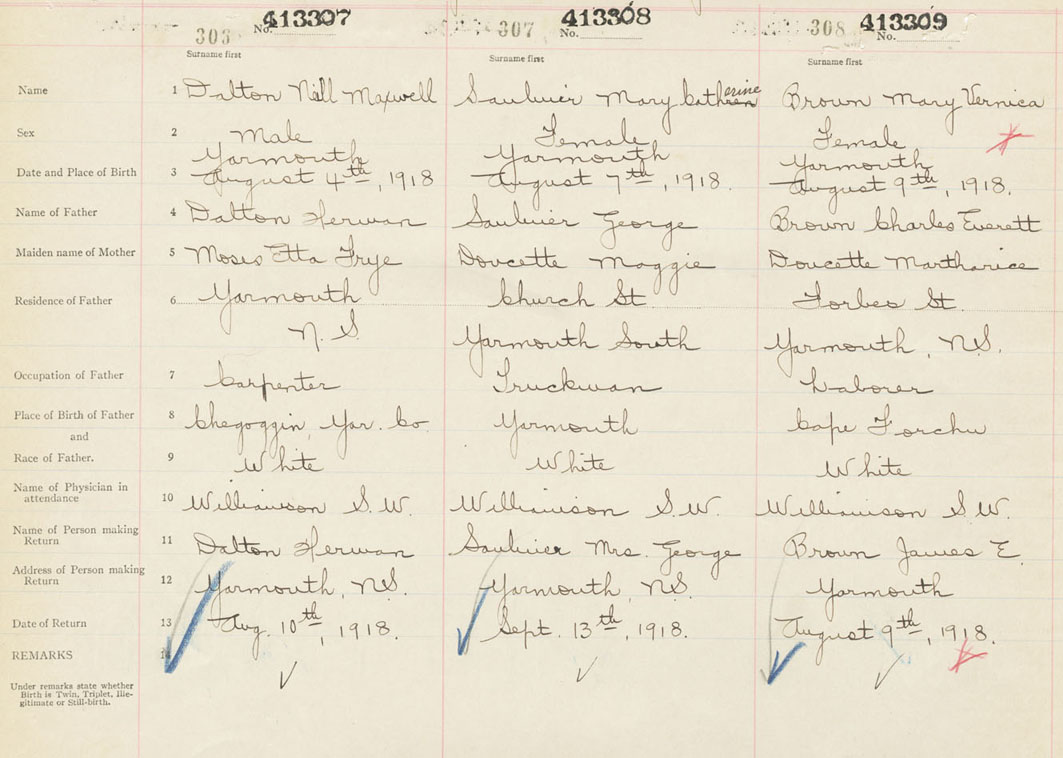 413307 413308 413309
303 No. 307 No. 308 No.
Surname first Surname first Surname first
Name 1 Dalton Niell Maxwell Saulnier Mary Catherine Brown Mary Vernica
Sex 2 Male Female Female
Yarmouth Yarmouth Yarmouth
Date and Place of Birth 3 August 4th, 1918 August 7th, 1918. August 9th, 1918.
Name of Father 4 Dalton Herman Saulnier George Brown Charles Everett
Maiden name of Mother 5 Moses Etta Frye Doucette Maggie Doucette Martharice
Residence of Father 6 Yarmouth Church St Forbes St.
N. S. Yarmouth South Yarmouth, N.S.
Occupation of Father 7 Carpenter Truckman Laborer
Place of Birth of Father 8 Chegoggin, Yar. Co. Yarmouth Cape Forchu
and
Race of Father. 9 White White White
Name of Physician in
attendance 10 Williamson S. W. Williamson S. W. Williamson S. W.
Name of Person making
Return 11 Dalton Herman Saulnier Mrs. George Brown James E.
Address of Person making
Return 12 Yarmouth, N.S. Yarmouth, N.S. Yarmouth
Date of Return 13 Aug. 10th, 1918. Sept. 13th, 1918. August 9th, 1918.
REMARKS 14
Under remarks state whether
Birth is Twin, Triplet, Ille-
gitimate or Still-birth.